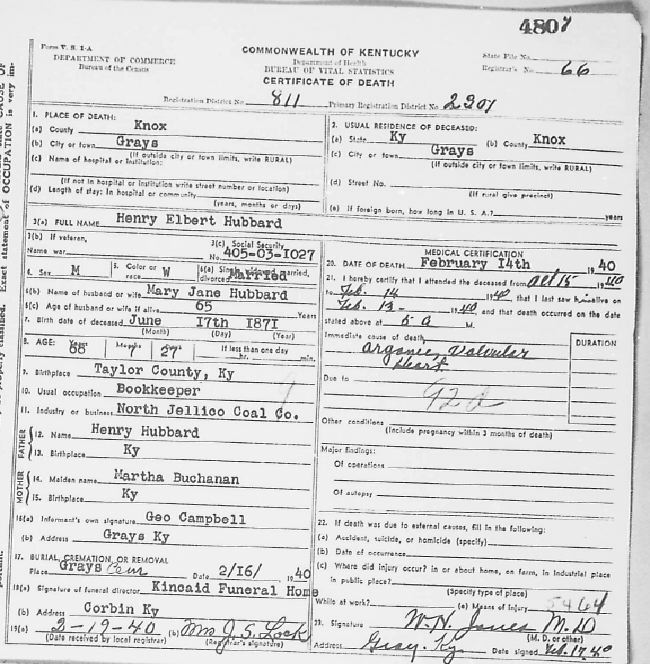 4807
Form V. S. 1-A
DEPARTMENT OF COMMERCE
Bureau of the Census
COMMONWEALTH OF KENTUCKY
Department of Health
BUREAU OF VITAL STATISTICS
CERTIFICATE OF DEATH
State File No.
Registrar's No. 66
Registration District No. 811 Primary Registration District No. 2201
1. PLACE OF DEATH:
(a) County Knox
(b) City or town Grays
(If outside city or town limits, write RURAL)
(c) Name of hospital or institution:
(If not in hospital or institution write street number or location)
(d) Length of stay: In hospital or community
(years, months or days)
2. USUAL RESIDENCE OF DECEASED:
(a) State Ky (b) County Knox
(c) City or town Grays
(If outside city or town limits, write RURAL)
(d) Street No.
(If rural give precinct)
(e) If foreign born, how long in U. S. A.? years
3(a) FULL NAME Henry Elbert Hubbard
3(b) If veteran, Name war
3(c) Social Security No. 405-03-1027
4. Sex M 5. Color or race W 6(a) Single, widowed, married, divorced Married
6(b) Name of husband or wife Mary Jane Hubbard
6(c) Age of husband or wife if alive 65 Years
7. Birth date of deceased June 17th 1871
(Month) (Day) (Year)
8. AGE: Years Months 7 Days 27 If less than one day
hr. min.
9. Birthplace Taylor County, Ky
10. Usual occupation Bookkeeper
11. Industry or business North Jellico Coal Co.
FATHER
12. Name Henry Hubbard
13. Birthplace Ky
MOTHER
14. Maiden name Martha Buchanan
15. Birthplace Ky
16(a) Informant's own signature Geo Campbell
(b) Address Grays Ky
17. BURIAL, CREMATION, OR REMOVAL
Place Grays Cem Date 2/16/ 1940
18(a) Signature of funeral director Kincaid Funeral Home
(b) Address Corbin Ky
19(a) 2-19-40 (b) Mrs J. S. Lock
(Date received by local registrar) (Registrar's signature)
MEDICAL CERTIFICATION
20. DATE OF DEATH February 14th 1940
21. I hereby certify that I attended the deceased from Oct 15 1940
to Feb. 14 1940 that I last saw him alive on
Feb. 13- 1940 and that death occurred on the date
stated above at 5 a M.
Immediate cause of death DURATION
organic valvular
heart
Due to
92a
Other conditions
(Include pregnancy within 3 months of death)
Major findings:
Of operations
Of autopsy
22. If death was due to external causes, fill in the following:
(a) Accident, suicide, or homicide (specify)
(b) Date of occurrence
(c) Where did injury occur? in or about home, on farm, in industrial place
in public place?
(Specify type of place)
While at work? (e) Means of injury
23. Signature W. H. Jones M. D
(M. D. or other)
Address Gray. Ky. Date signed Feb. 17. 40